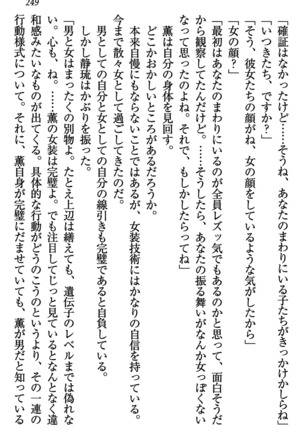 249
「確証はなかったけど……そうね、あなたのまわりにいる子たちがきっかけかしらね」
「いつきたち、ですか?」
「そう、彼女たちの顔がね、女の顔をしているような気がしたから」
「女の顔?」
「最初はあなたのまわりにいるのが全員レズッ気でもあるのかと思って、面白そうだ
から観察してたんだけど。……そうしたら、あなたの振る舞いがなんか女っぽくない
なって思ったのよね。それで、もしかしたらってね」
薫は自分の身体を見回す。
どこかおかしいところがあるだろうか。
本来自慢にもならないことではあるが、女装技術にはかなりの自信を持っている。
今まで散々女として過ごしてきたのだ。
男としての自分と女としての自分の線引きも完璧であると自負している。
しかし静琉はかぶりを振った。
「男と女はまったくの別物よ。たとえ上辺は繕えても、遺伝子のレベルまでは偽れな
い。心も、ね。……薫の女装は完璧よ。でも注目してじっと見ているとなんとなく違
和感みたいなものが出てくる。具体的な行動がどうのこうのというより、その一連の
行動様式について。それに、薫自身が完璧にだませていても、薫が男だと知っている